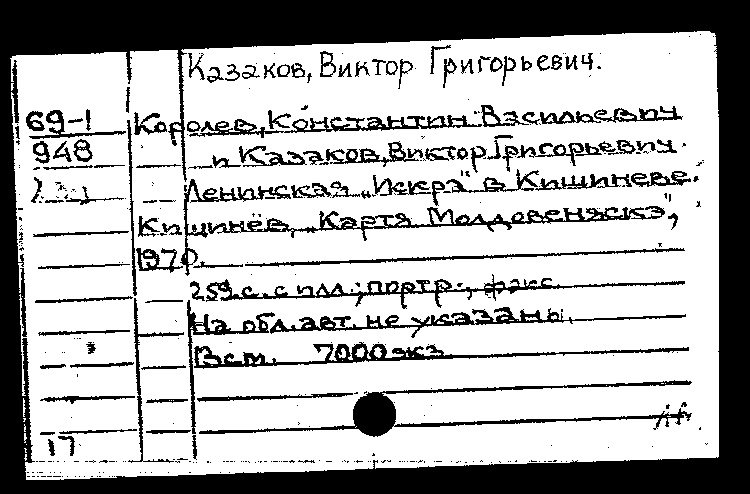 Казаков, Виктор Григорьевич.
69-1 Королев, Константин Васильевич
948 и Казаков, Виктор Григорьевич.
Ленинская „Искра" в Кишиневе.
Кишинёв, „Картя Молдовеняскэ",
1970.
259 с. с илл.; портр.; факс.
На обл. авт. не указаны.
Вст. 7000 экз.
17